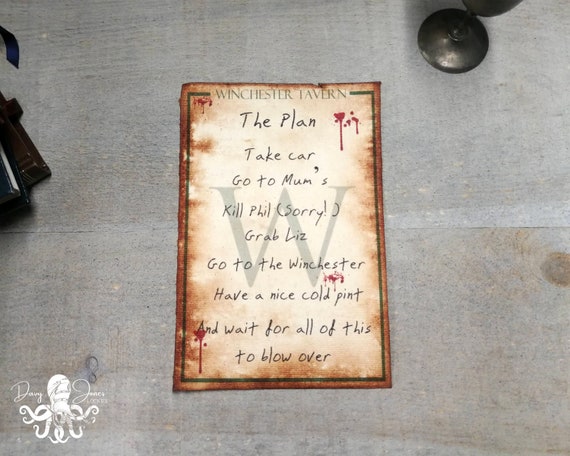 WINCHESTER TAVERN
The Plan
Take car
Go to Mum's
W
Kill Phil (Sorry!)
Grab Liz
Go to the Winchester
Have a nice cold pint
And wait for all of this
to blow over
Davy Jones